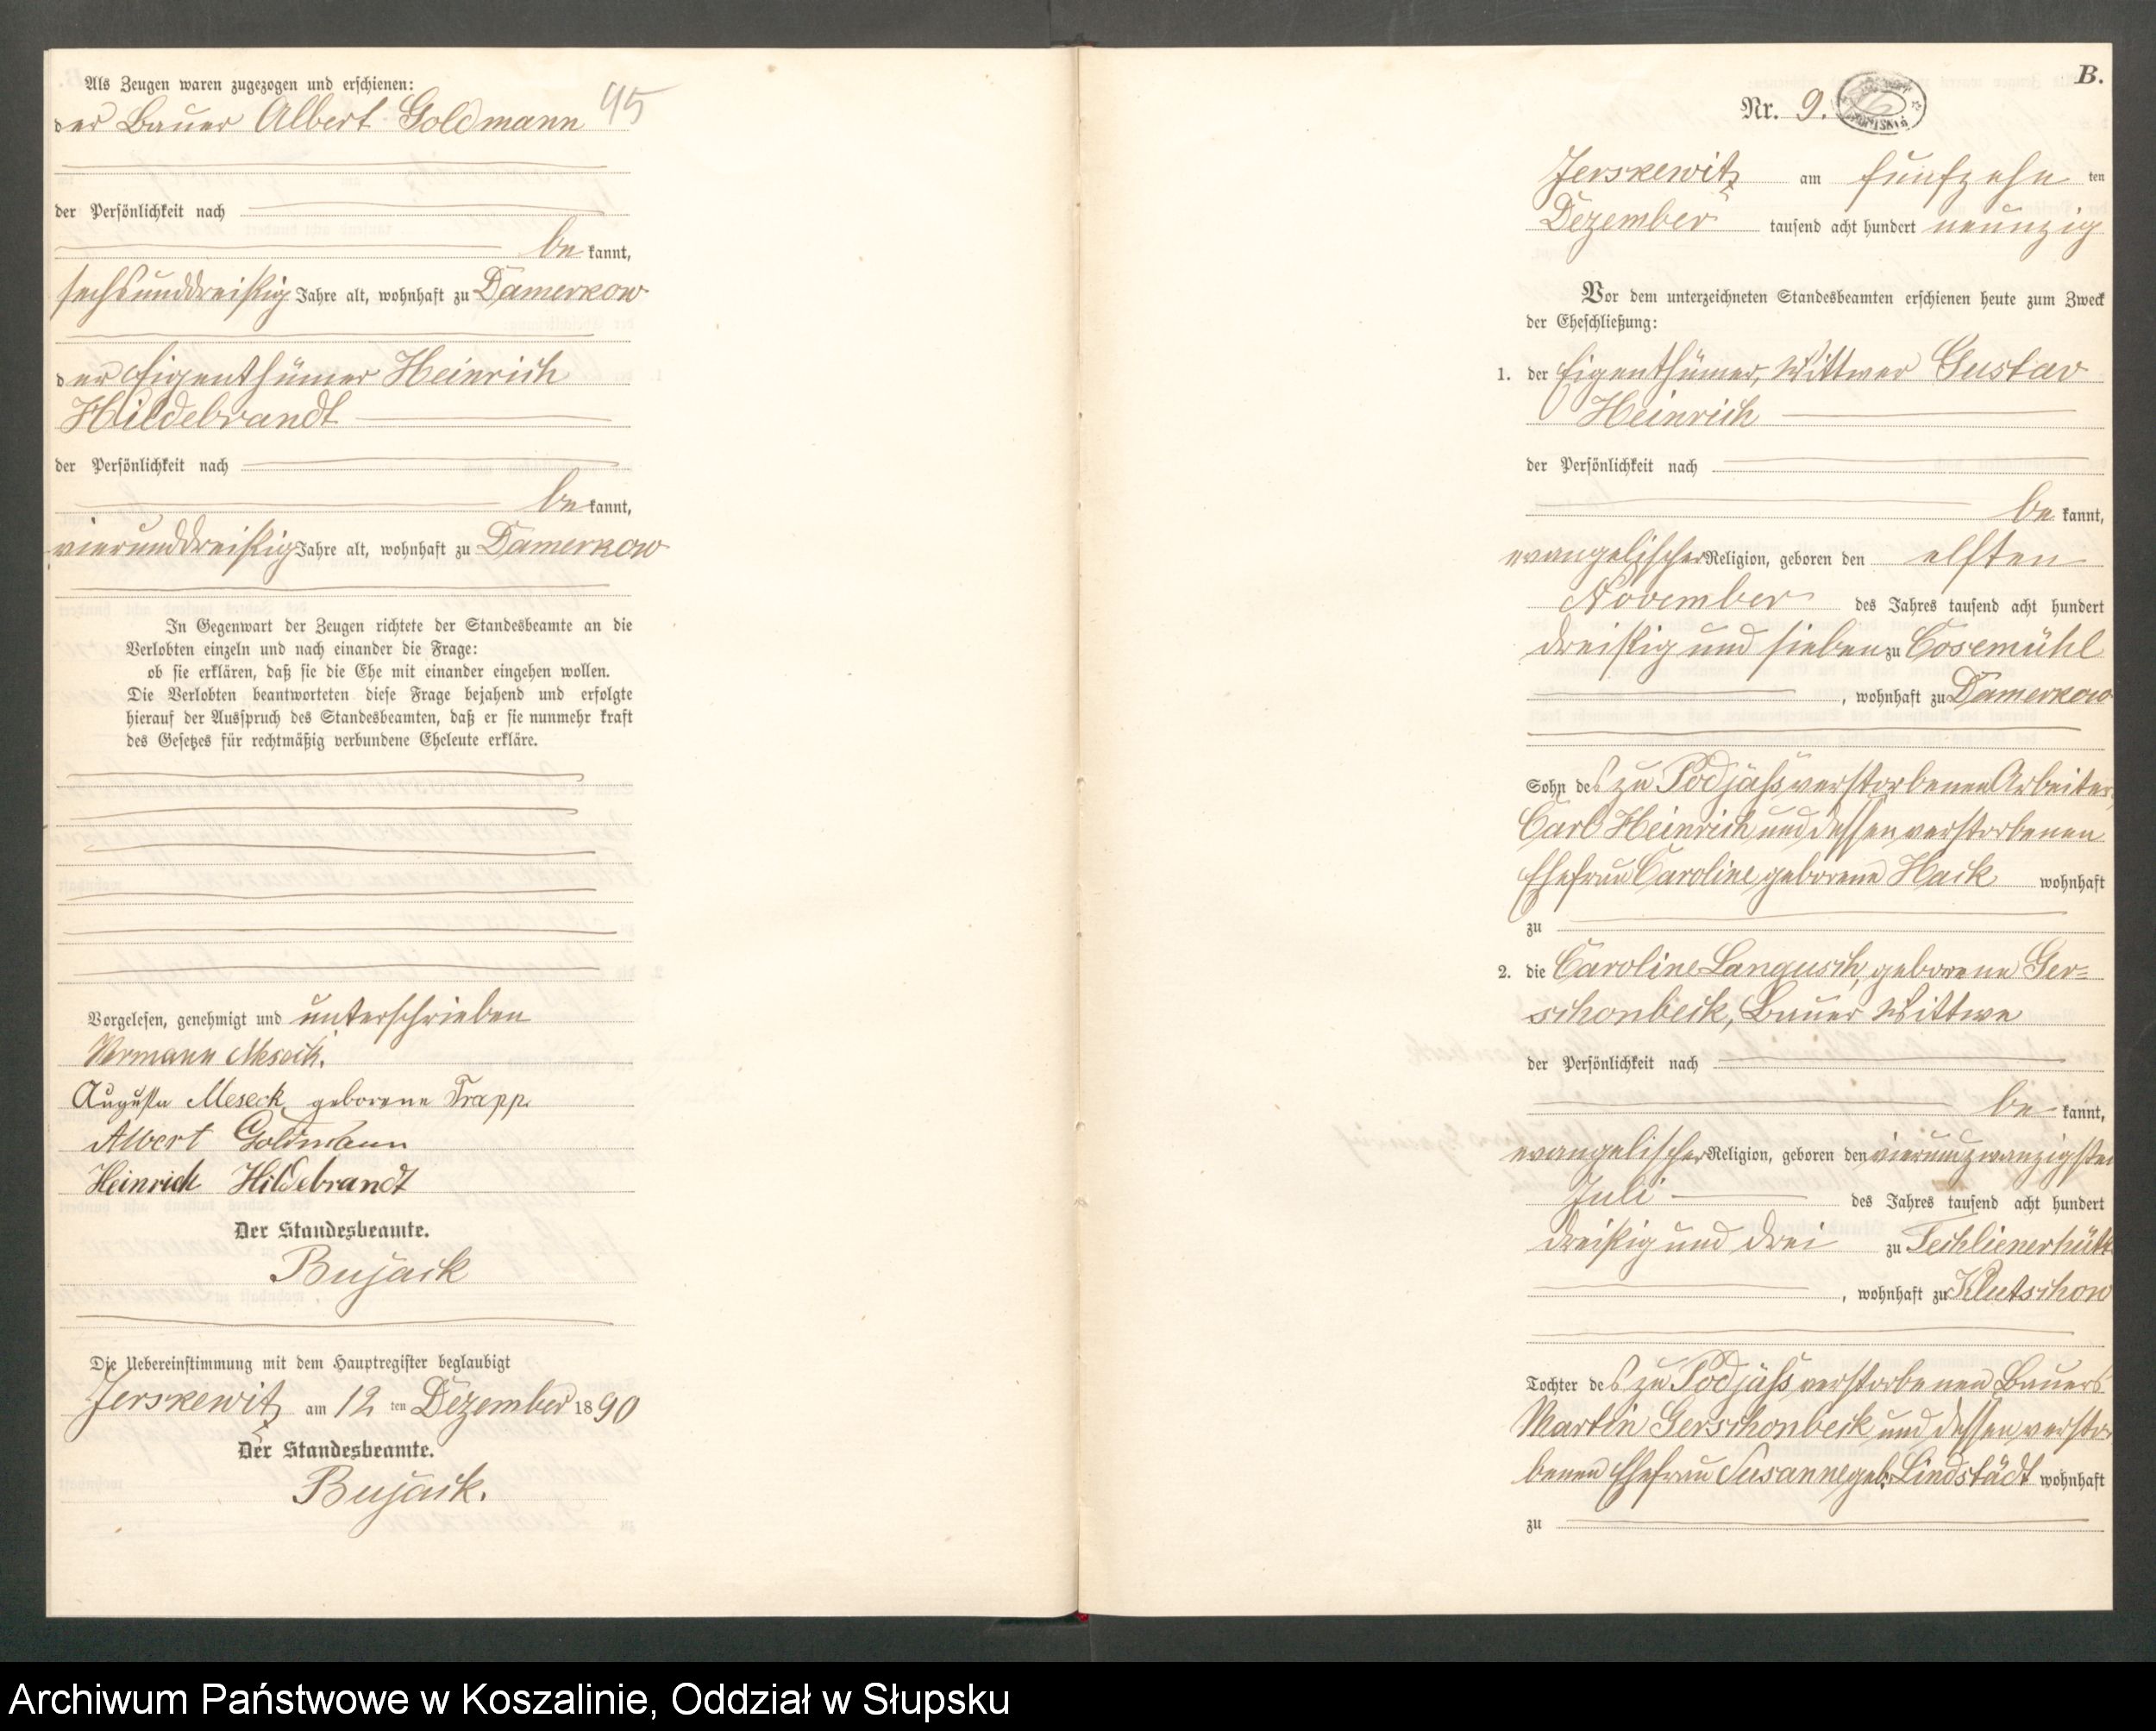 Als Zeugen waren zugezogen und erschienen:
der Bauer Albert Goldmann 45
der Persönlichkeit nach
be kannt,
sechsunddreißig Jahre alt, wohnhaft zu Damerkow
der Eigenthümer Heinrich
Hildebrandt
der Persönlichkeit nach
be kannt,
vierunddreißig Jahre alt, wohnhaft zu Damerkow
In Gegenwart der Zeugen richtete der Standesbeamte an die
Verlobten einzeln und nach einander die Frage:
ob sie erklären, daß sie die Ehe mit einander eingehen wollen.
Die Verlobten beantworteten diese Frage bejahend und erfolgte
hierauf der Ausspruch des Standesbeamten, daß er sie nunmehr kraft
des Gesetzes für rechtmäßig verbundene Eheleute erkläre.
Vorgelesen, genehmigt und unterschrieben
Hermann Meseck.
Auguste Meseck geborene Trapp.
Albert Goldmann
Heinrich Hildebrandt
Der Standesbeamte.
Bujack
Die Uebereinstimmung mit dem Hauptregister beglaubigt
Jerskewitz am 12 ten Dezember 1890
Der Standesbeamte.
Bujack.
B.
Nr. 9.
Jerskewitz am fünfzehn ten
Dezember tausend acht hundert neunzig
Vor dem unterzeichneten Standesbeamten erschienen heute zum Zweck
der Eheschließung:
1. der Eigenthümer, Wittwer Gustav
Heinrich
der Persönlichkeit nach
be kannt,
evangelischer Religion, geboren den elften
November des Jahres tausend acht hundert
dreißig und sieben zu Cosemühl
, wohnhaft zu Damerkow
Sohn des zu Podjaß verstorbenen Arbeiter
Carl Heinrich und dessen verstorbenen
Ehefrau Caroline geborene Hack wohnhaft
zu
2. die Caroline Langusch, geborene Ger=
schonbeck, Bauer Wittwe
der Persönlichkeit nach
be kannt,
evangelischer Religion, geboren den vierundzwanzigsten
Juli des Jahres tausend acht hundert
dreißig und drei zu Techlienerhütte
, wohnhaft zu Klutschow
Tochter des zu Podjaß verstorbenen Bauers
Martin Gerschonbeck und dessen verstor
benen Ehefrau Susanne geb. Lindstädt wohnhaft
zu
Archiwum Państwowe w Koszalinie, Oddział w Słupsku